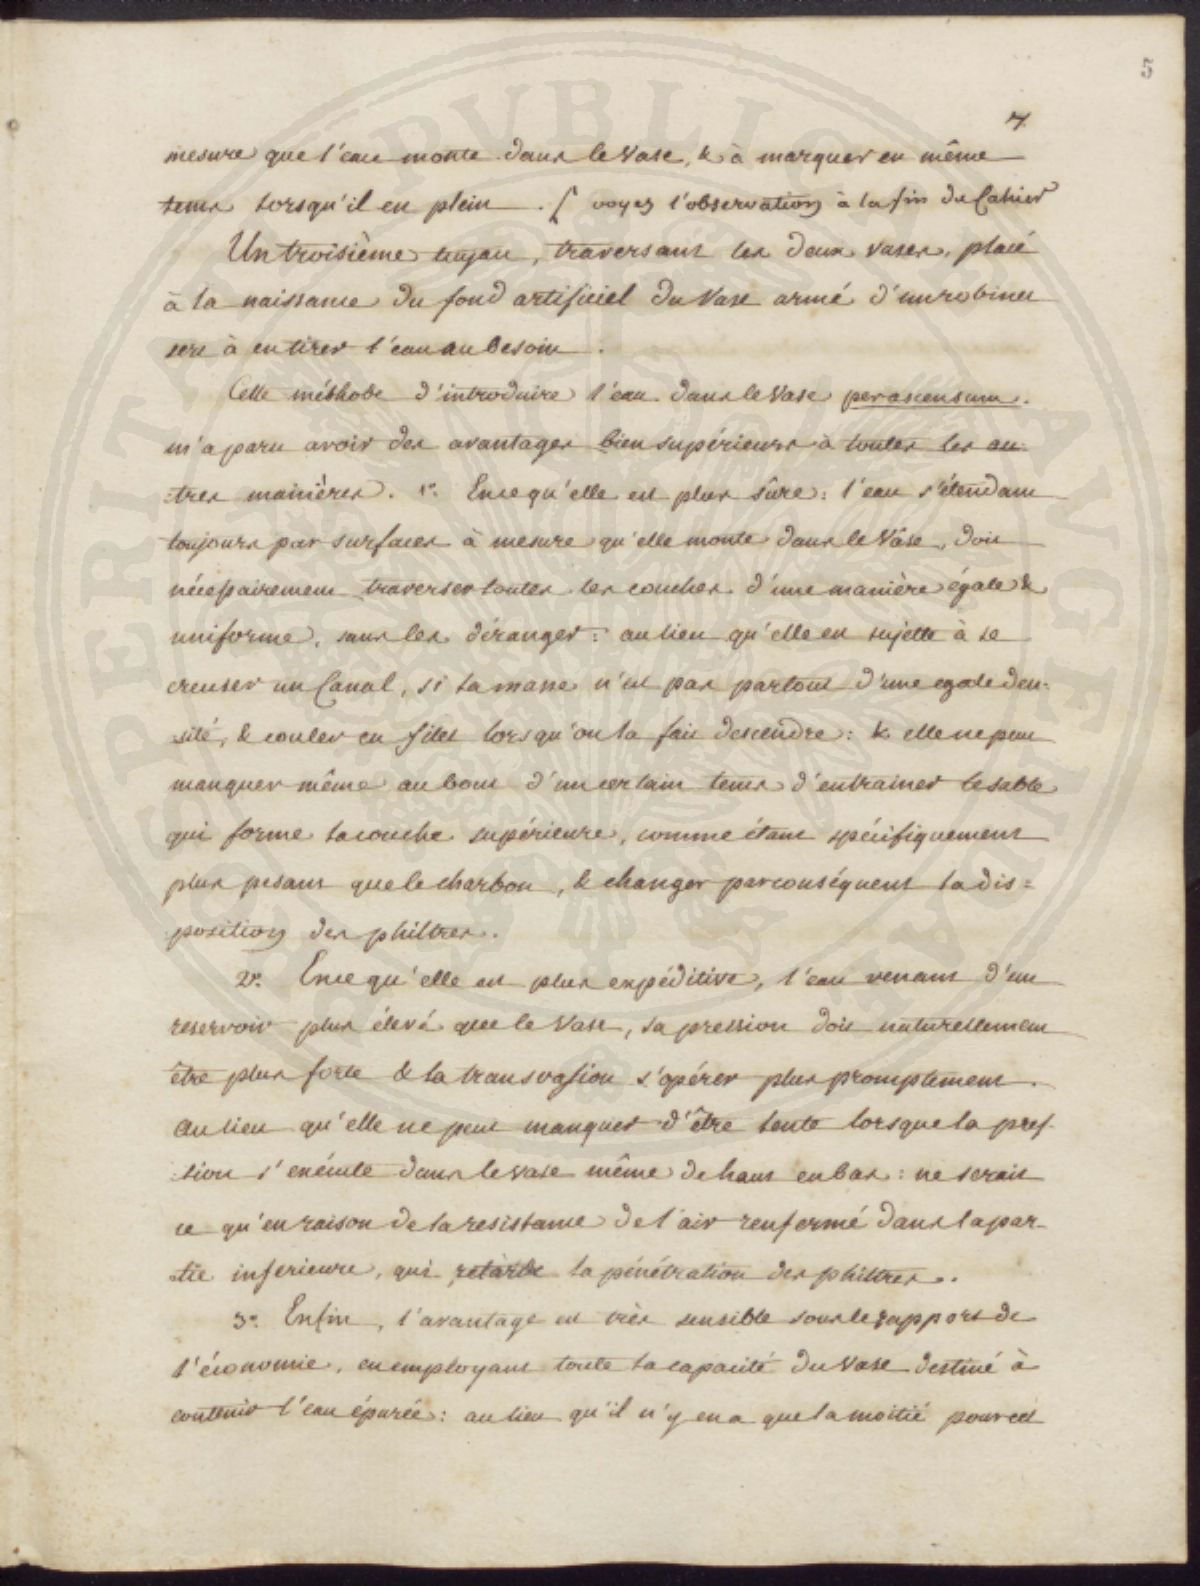 5
7.
mesure que l'eau monte dans le Vase, & à marquer en même
tems lorsqu'il en plein . ( voyez l'observation à la fin du Cahier
Un troisième tuyau, traversant les deux vases, placé
à la naissance du fond artificiel du Vase armé d'un robinet
sert à en tirer l'eau au besoin .
Cette méthode d'introduire l'eau dans le Vase per ascensum.
m'a paru avoir des avantages bien supérieurs à toutes les au-
:tres manières. 1°. En ce qu'elle est plus sûre : l'eau s'étendant
toujours par surfaces à mesure qu'elle monte dans le Vase, doit
nécessairement traverser toutes les couches d'une manière égale &
uniforme, sans les déranger : au lieu qu'elle est sujette à se
creuser un Canal, si la masse n'est pas partout d'une egale den-
:sité, & couler en filet lorsqu'on la fait descendre : & elle ne peut
manquer même au bout d'un certain tems d'entrainer le sable
qui forme la couche supérieure, comme étant spécifiquement
plus pesant que le charbon, & changer par conséquent la dis=
:position des philtres.
2°. En ce qu'elle est plus expéditive, l'eau venant d'un
reservoir plus élevé que le Vase, sa pression doit naturellement
être plus forte & la transvasion s'opérer plus promptement .
au lieu qu'elle ne peut manquer d'être lente lorsque la pres-
:sion s'exécute dans le vase même de haut en bas : ne serait
ce qu'en raison de la resistance de l'air renfermé dans la par-
:tie inferieure, qui retarde la pénétration des philtres.
3°. Enfin, l'avantage est très sensible sous le rapport de
l'économie, en employant toute la capacité du Vase destiné à
contenir l'eau épurée : au lieu qu'il n'y en a que la moitié pour cet